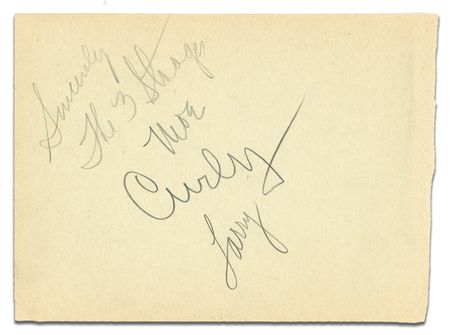 Sincerely
The 3 Stooges
Moe
Curly
Larry